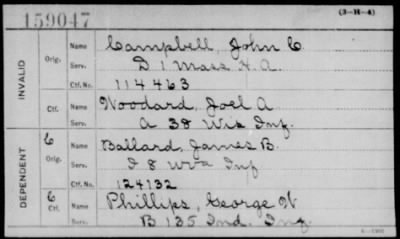 159047 (3-H-4)
INVALID
Orig. Name Campbell, John C.
Serv. D 1 Mass H. A.
Ctf. No. 114463
Ctf. Name Woodard, Joel A
Serv. A 38 Wis Inf.
DEPENDENT
C Orig. Name Ballard, James B.
Serv. I 8 WVa Inf
Ctf. No. 124132
C Ctf. Name Phillips, George W
Serv. B 135 Ind. Inf.